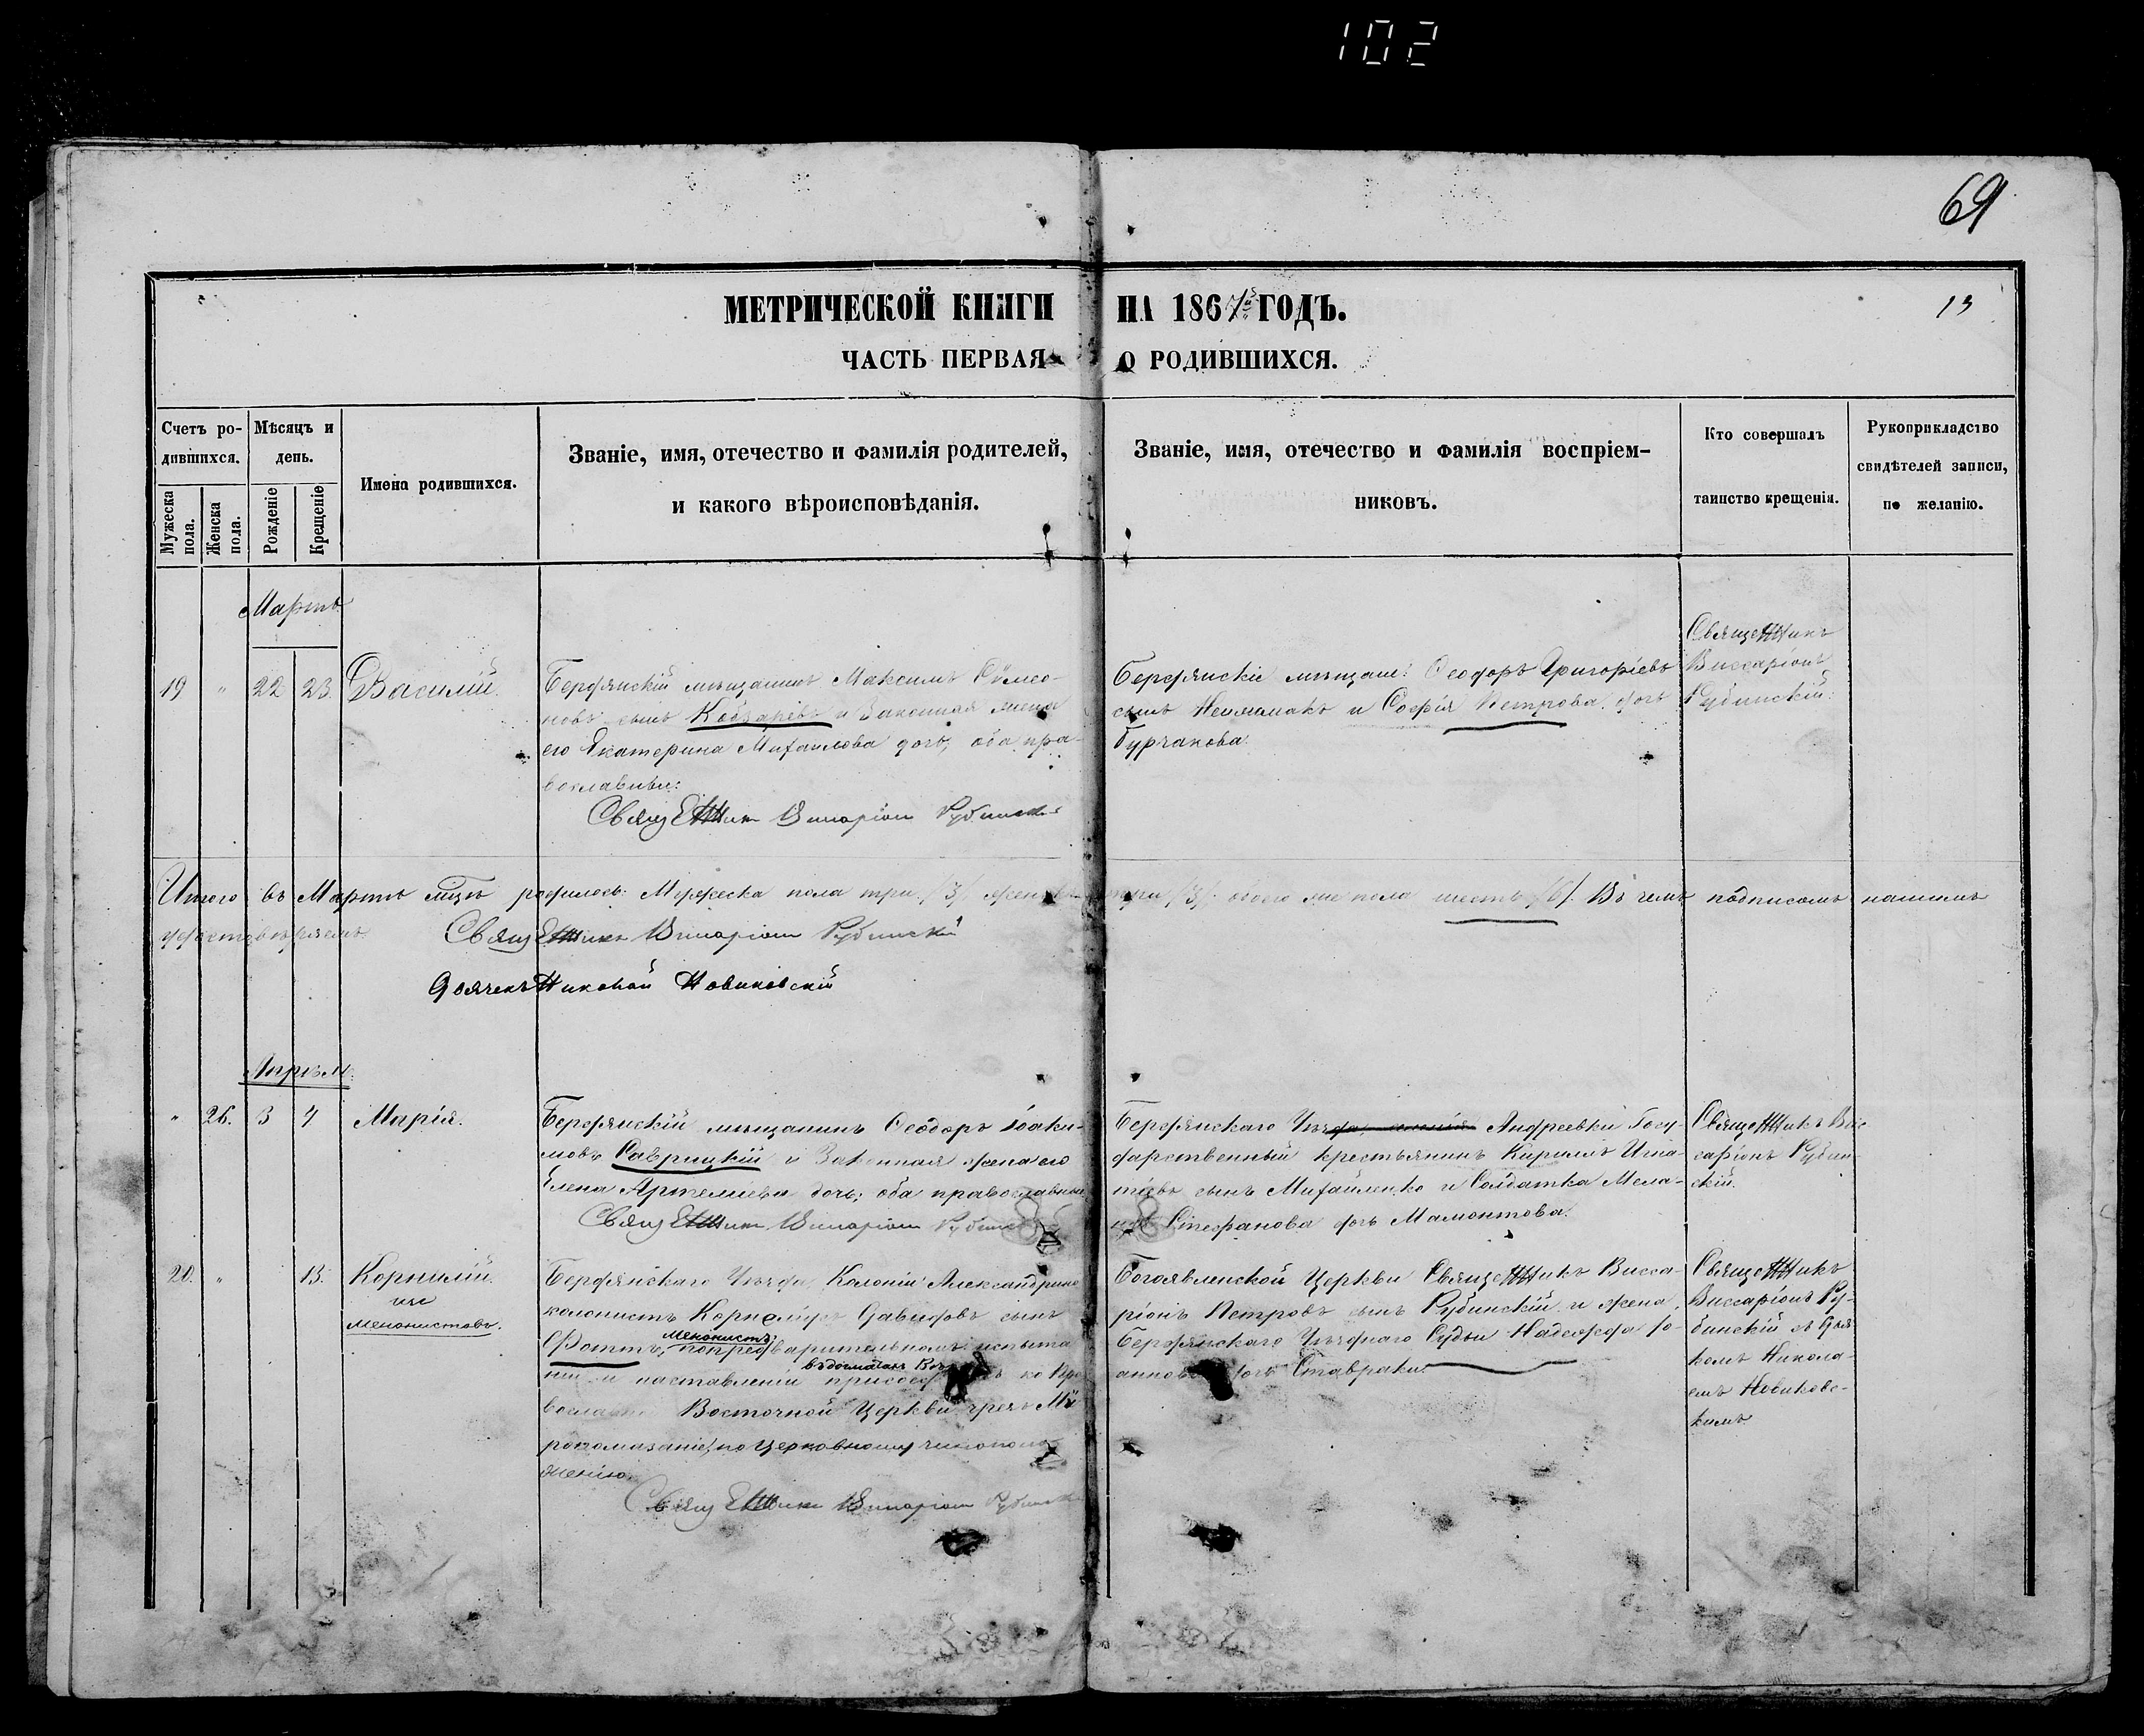 102
69
МЕТРИЧЕСКОЙ КНИГИ НА 1867й ГОДЪ.
13
ЧАСТЬ ПЕРВАЯ О РОДИВШИХСЯ.
Счетъ родившихся.
Мужеска пола.
Женска пола.
Мѣсяцъ и день.
Рожденіе
Крещеніе
Имена родившихся.
Званіе, имя, отечество и фамилія родителей,
и какого вѣроисповѣданія.
Званіе, имя, отечество и фамилія воспріем-
никовъ.
Кто совершалъ
таинство крещенія.
Рукоприкладство
свидѣтелей записи,
по желанію.
Мартъ
19 " 22 23. Василій.
Бердянскій мѣщанинъ Максимъ
новъ сынъ и законная жена
его Екатерина Михаилова дочь, оба пра-
вославные:
Священникъ Виссаріонъ Рубинскій
Бердянскіе мѣщане: Ѳеодоръ Григоріевъ
сынъ и Софія Петрова дочь
Бурчакова.
Священникъ
Виссаріонъ
Рубинскій.
Итого въ Мартѣ м͠цѣ родилось: Мужеска пола три /3/ женска три /3/. обоего пола шесть /6/. Въ чемъ подписомъ нашимъ
удостовѣряемъ.
Священникъ Виссаріонъ Рубинскій
Дьячекъ Николай Новиковскій
Апрѣль.
" 26. 3 4 Марія.
Бердянскій мѣщанинъ Ѳеодоръ Іоаки-
мовъ Саврицкій и Законная жена его
Елена Артеміева дочь; оба православные
Священникъ Виссаріонъ Рубинскій
Бердянскаго Уѣзда Андреевки Госу-
дарственный крестьянинъ Кириллъ Игна-
тіевъ сынъ Михайленко и Солдатка Мела-
нія Стефанова дочь Мамонтова.
Священникъ Вис-
саріонъ Рубин-
скій.
20. " 13. Корнилій.
изъ
менонистовъ.
Бердянскаго Уѣзда, Колоніи Александрине
колонистъ Корнелиусъ Давидовъ сынъ
менонистъ,
Фоттъ, по предварительномъ испыта
въ догматахъ Вѣры
ніи и наставленіи ко Пра
Восточной Церкви чрезъ Мѵ
ропомазаніе, по Церковному чинополо
женію.
Священникъ Виссаріонъ Рубинскій
Богоявленской Церкви Священникъ Висса-
ріонъ Петровъ сынъ Рубинскій и жена
Бердянскаго Уѣзднаго Судьи Надежда Іо-
аннова дочь Ставраки.
Священникъ
Виссаріонъ Ру-
бинскій съ Дьяч
комъ Никола-
емъ Новиковс-
кимъ